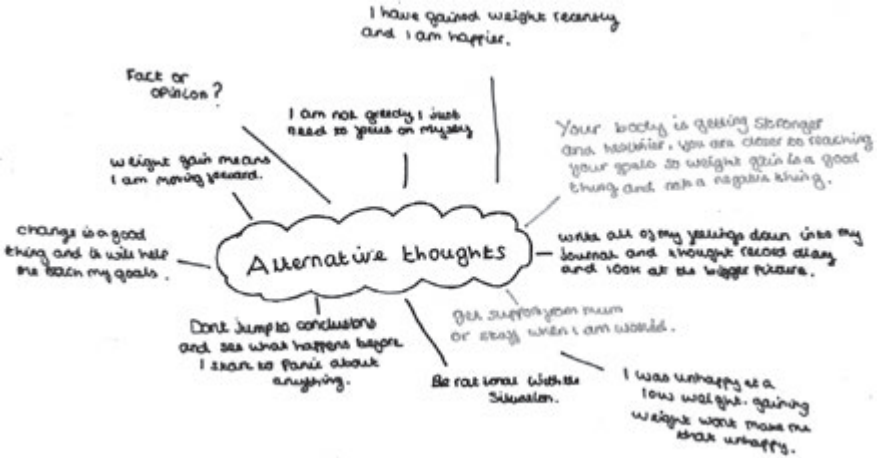 I have gained weight recently
and I am happier.
Fact or
opinion?
I am not greedy I just
need to focus on myself
Your body is getting stronger
and healthier. you are closer to reaching
your goals so weight gain is a good
thing and not a negative thing.
weight gain means
I am moving forward.
change is a good
thing and it will help
me reach my goals.
Alternative thoughts
write all of my feelings down into my
journal and thought record diary
and look at the bigger picture.
Dont jump to conclusions
and see what happens before
I start to panic about
anything.
get support from mum
or staff when I am worried.
Be rational with the
situation.
I was unhappy at a
low weight. gaining
weight wont make me
that unhappy.